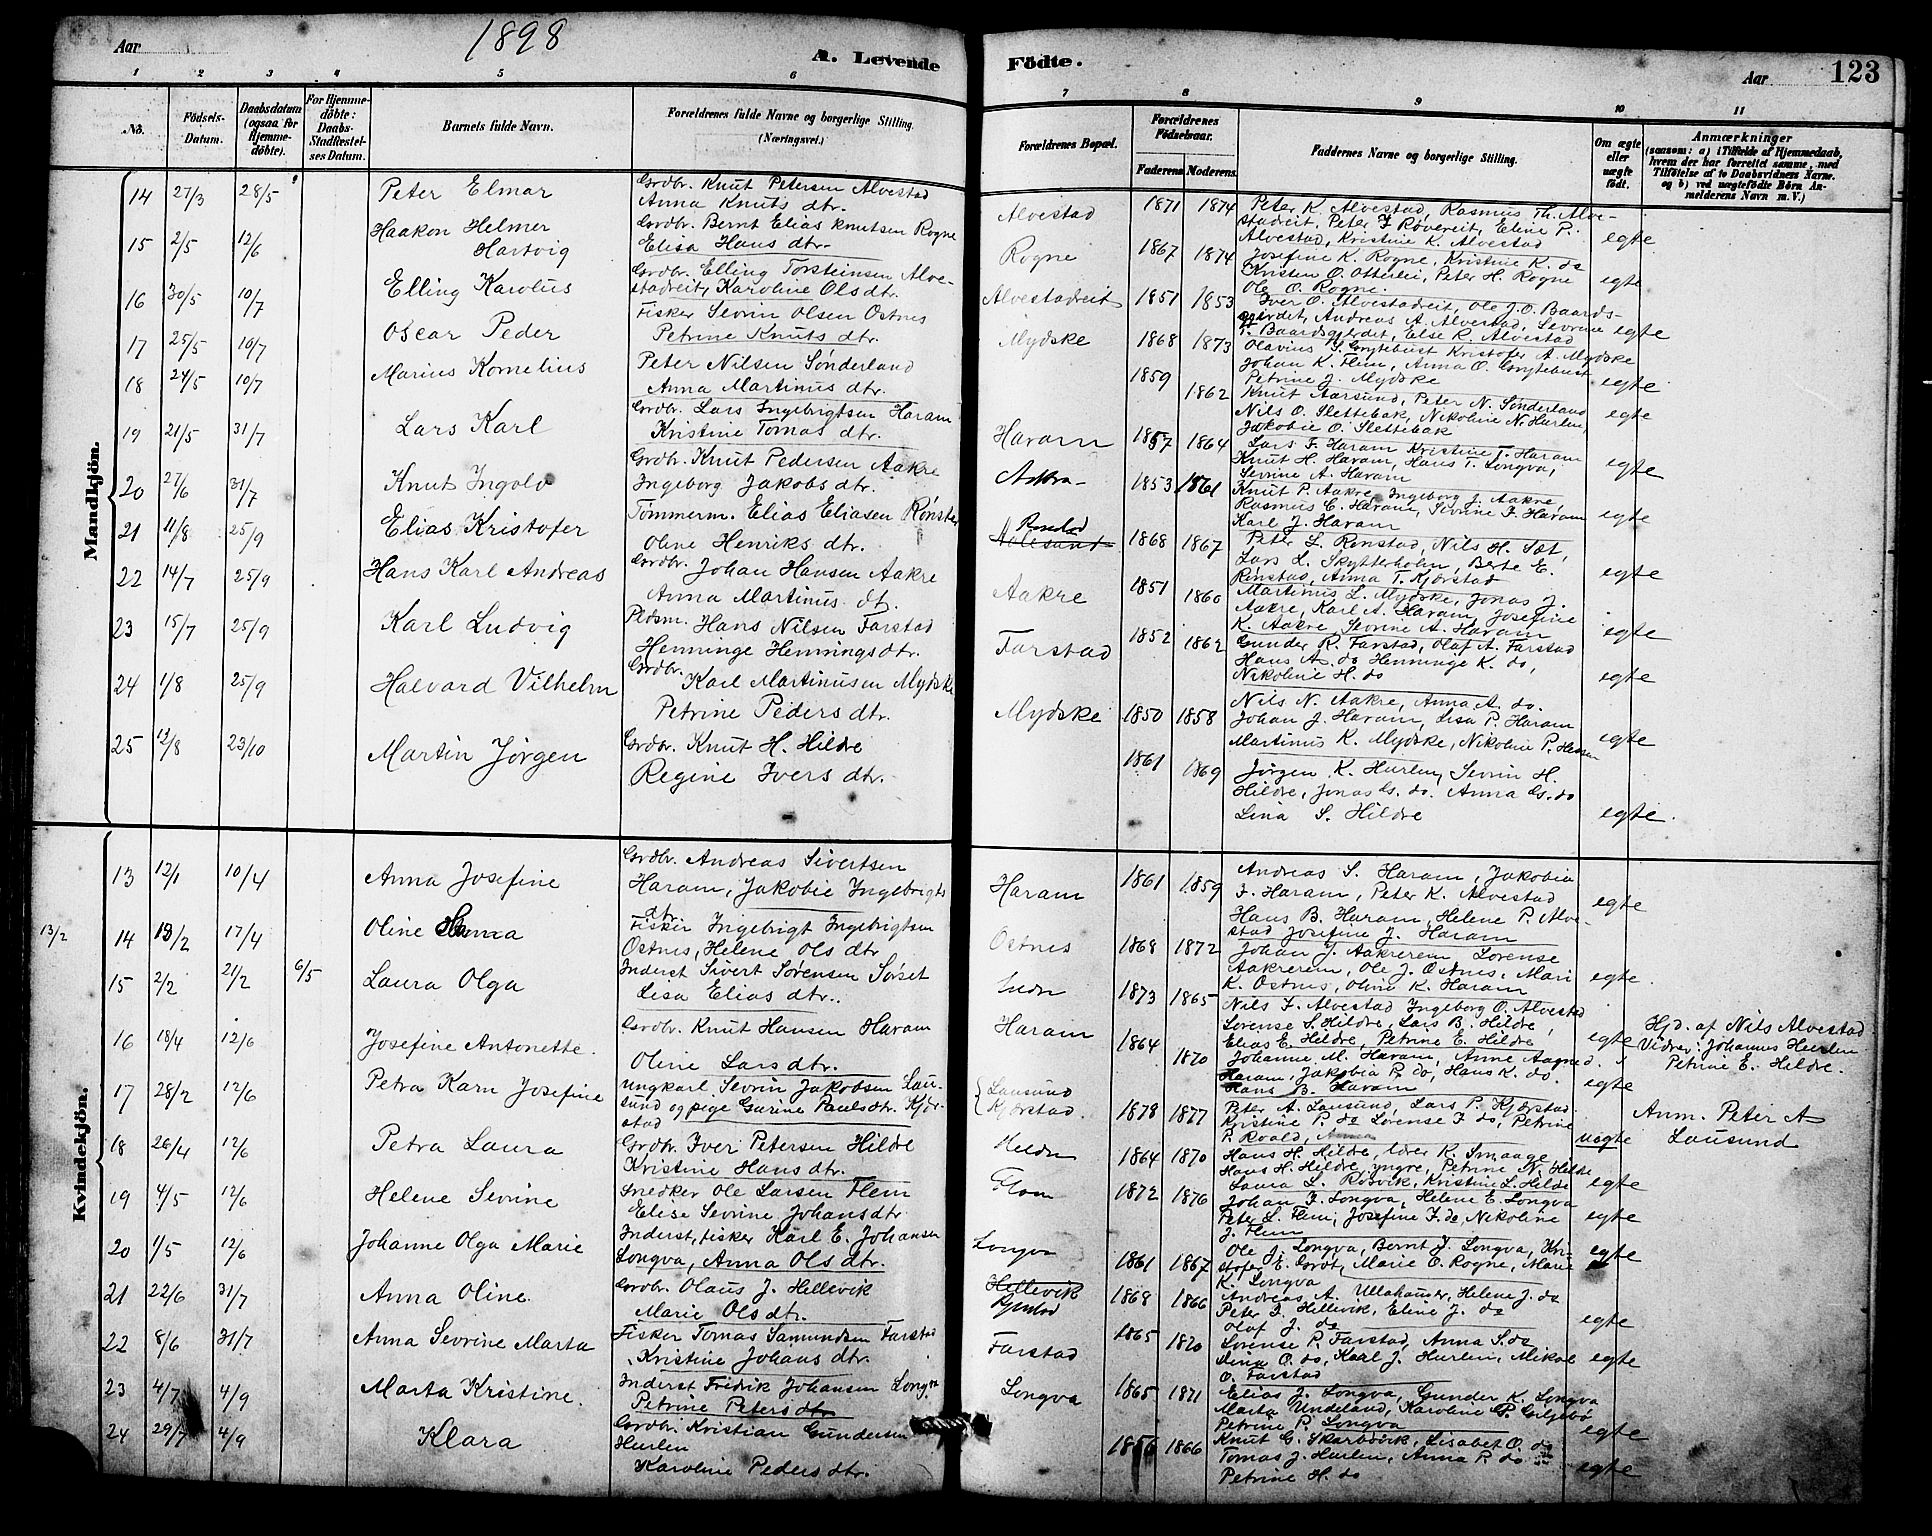 Aar 1898 A. Levende Födte. Aar 123
1 2 3 4 5 6 7 8 9 10 11
No. Födsels-Datum. Daabsdatum (ogsaa for Hjemme-döbte). For Hjemme-döbte: Daabs-Stadfæstel-ses Datum. Barnets fulde Navn. Forældrenes fulde Navne og borgerlige Stilling. (Næringsvei.) Forældrenes Bopæl. Forældrenes Födselsaar. Faderens Moderens Faddernes Navne og borgerlige Stilling. Om ægte eller uægte födt. Anmærkninger (saasom: a) i Tilfælde af Hjemmedaab, hvem der har forrettet samme, med Tilföielse af to Daabsvidners Navne. og b) ved uægtefödte Börn An-melderens Navn m. V.)
Mandkjön.
14 27/3 28/5 Peter Elmar Grdbr. Knut Petersen Alvestad
Anna Knuts dtr. Alvestad 1871 1874 Peter K. Alvestad, Rasmus Th. Alve-
stadreit, Peter J Røvereit, Eline P.
Alvestad, Kristine K. Alvestad egte
15 2/5 12/6 Haakon Helmer
Hartvig Grdbr. Bernt Elias Knutsen Rogne
Elisa Hans dtr. Rogne 1867 1874 Josefine K. Rogne, Kristine K. do
Kristen O. Otterlei, Peter H. Rogne
Ole O. Rogne. egte
16 30/5 10/7 Elling Karolus Grdbr. Elling Torsteinsen Alve-
stadreit, Karoline Ols dtr. Alvestadreit 1851 1853 Iver O. Alvestadreit, Ole J.O. Baards-
gærdet, Andreas A. Alvestad, Sevrine
T. Baardsgjerdet, Else R. Alvestad egte
17 25/5 10/7 Oscar Peder Fisker Sevrin Olsen Ostnes
Petrine Knuts dtr. Mydske 1868 1873 Olavius S. Grytebust Kristofer A. Mydske
Johan K. Flem, Anna O. Grytebust
Petrine J. Mydske egte
18 24/5 10/7 Marius Kornelius Peter Nilsen Sønderland
Anna Martinus dtr. 1859 1862 Knut Aarsund, Peter N. Sønderland
Nils O. Slettebak, Nikoline N. Hurlen,
Jakobie O. Slettebak egte
19 21/5 31/7 Lars Karl Grdbr. Lars Ingebrigtsen Haram
Kristine Tomas dtr. Haram 1857 1864 Lars F. Haram Kristine T. Haram
Knut H. Haram, Hans T. Longva,
Sevrine A. Haram egte
20 27/6 31/7 Knut Ingolv Grdbr. Knut Pedersen Aakre
Ingeborg Jakobs dtr. 1853 1861 Knut P. Aakre, Ingeborg J. Aakre
Rasmus C. Haram, Sevrine F. Haram
Karl J. Haram egte
21 11/8 25/9 Elias Kristofer Tømmerm. Elias Eliasen Rønstad
Oline Henriks dtr. Rønstad
Aalesund 1868 1867 Peter L. Rønstad, Nils H. Sæt,
Lars L. Skytterholm, Berte E.
Rønstad, Anna T. Kjærstad egte
22 14/7 25/9 Hans Karl Andreas Grdbr. Johan Hansen Aakre
Anna Martinus dt. Aakre 1851 1860 Martinus L. Mydske, Jonas J.
Aakre, Karl A. Haram, Josefine
K. Aakre, Sevrine A. Haram egte
23 15/7 25/9 Karl Ludvig Pldsm. Hans Nilsen Farstad
Henninge Hennings dtr. Farstad 1852 1862 Gunder R. Farstad, Olaf A. Farstad
Hans A. do Henninge K. do,
Nikoline H. do egte
24 1/8 25/9 Halvard Vilhelm Grdbr. Karl Martinusen Mydske
Petrine Peders dtr. Mydske 1850 1858 Nils N. Aakre, Anna A. do.
Johan J. Haram, Lisa P. Haram
Martinus K. Mydske, Nikoline P. egte
25 13/8 23/10 Martin Jørgen Grdbr. Knut H. Hildre
Regine Ivers dtr. 1861 1869 Jørgen K. Hurlen, Sevrin H.
Hildre, Jonas Gs. do. Anna Gs. do
Lina S. Hildre egte.
Kvindekjön.
13 12/1 10/4 Anna Josefine Grdbr. Andreas Sivertsen
Haram, Jakobie Ingebrigts
dtr. Haram 1861 1859 Andreas S. Haram, Jakobia
F. Haram, Peter K. Alvestad
Hans B. Haram, Helene P. Alve-
stad Josefine J. Haram egte
13/2 14 13/2 17/4 Oline Fisker Ingebrigt Ingebrigtsen
Ostnes, Helene Ols dtr Ostnes 1868 1872 Johan J. Aakrerem Lorense
Aakrerem, Ole J. Ostnes, Mari
K. Ostnes, Oline K. Haram egte
15 2/2 21/2 6/5 Laura Olga Inderst Sivert Sørensen Sørset
Lisa Elias dtr. 1873 1865 Nils F. Alvestad Ingeborg O. Alvestad
Lorense S. Hildre, Lars B. Hildre,
Elias E. Hildre, Petrine E. Hildre egte Hjd. af Nils Alvestad
Vidner: Johannes Hurlen
Petrine E. Hildre.
16 18/4 12/6 Josefine Antonette Grdbr. Knut Hansen Haram
Oline Lars dtr. Haram 1864 1870 Johanne M. Haram, Anne
Haram, Jakobia P. do, Hans K. do.
Hans B. Haram egte
17 28/2 12/6 Petra Karn Josefine Ungkarl Sevrin Jakobsen Lau-
sund og pige Gurine Pauls dtr. Kjær-
stad Lausund
Kjærstad. 1878 1877 Peter A. Lausund, Lars P. Kjærstad.
Kristine P. do Lorense F do, Petrine
P. Roald, uægte Anm. Peter A
Lausund
18 26/4 12/6 Petra Laura Grdbr. Iver Petersen Hildre
Kristine Hans dtr. Heldre 1864 1870 Hans H. Hildre, Iver K. Smaage,
Hans H. Hildre, yngre, Petrine N. Hildre
Laura L. Rosvik, Kristine L. Hilde egte
19 4/5 12/6 Helene Sevrine Snedker Ole Larsen Flem
Elise Sevrine Johans dtr Flem 1872 1876 Johan J. Longva, Helene E. Longva
Peter L. Flem, Josefine F. do, Nikoline
J. Flem egte
20 1/5 12/6 Johanne Olga Marie Inderst, fisker Karl E. Johansen
Longva, Anna Ols dtr. Longva 1861 1867 Ole J. Longva, Bernt J. Longva, Kri-
stofer E. Grøt, Marie O. Rogne, Marie
K. Longva egte
21 22/6 31/7 Anna Oline. Grdbr. Olaus J. Hellevik
Marie Ols dtr. Hellevik 1868 1866 Andreas A. Ullahauer, Helene J. do
Peter J. Hellevik, Eline J. do
Olaf J. do egte
22 8/6 31/7 Anna Sevrine Marta Fisker Tomas Samundsen Farstad
Kristine Johans dtr. Farstad 1865 1870 Lorense P. Farstad, Anna S. do
Lina O. do, Karl J. Hurlen, Mikal
O. Farstad egte
23 4/7 4/9 Marta Kristine. Inderst Fredrik Johansen Longva
Petrine Peters dtr Longva 1865 1871 Elias J. Longva, Gunder K. Longva
Marta Undeland, Karoline P. Giljebø
Petrine P. Longva egte
24 29/7 4/9 Klara Grdbr. Kristian Gundersen
Hurlen
Karoline Peders dtr. 1856 1866 Knut G. Skarbøvik, Lisabet O. do
Tomas J. Hurlen, Anna P. do
Petrine H. do egte